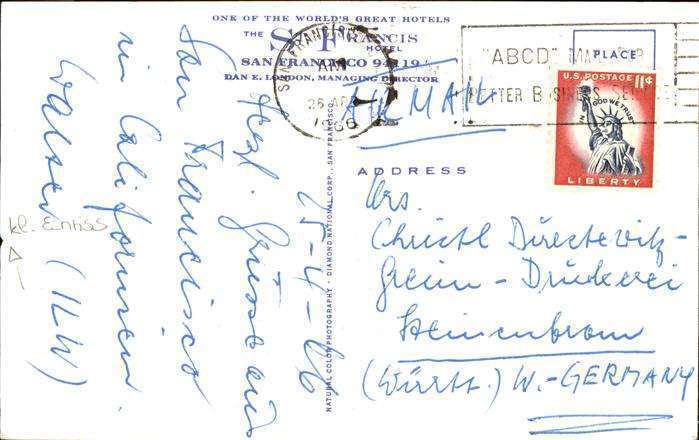 ONE OF THE WORLD'S GREAT HOTELS
THE ST. FRANCIS
HOTEL
SAN FRANCISCO 94119
DAN E. LONDON, MANAGING DIRECTOR
SAN FRANCISCO
AM
1966
"ABCD" MAIL
BETTER BUSINESS
PLACE
U.S. POSTAGE 11¢
IN GOD WE TRUST
LIBERTY
AIR MAIL
25-4-66
Herzl. Grüsse aus
San Francisco
in Californien.
Walter (ILW)
kl. Einriss
NATURAL COLOR PHOTOGRAPHY - DIAMOND NATIONAL CORP., SAN FRANCISCO
ADDRESS
Mrs.
Christl
Greiner-Druckerei
(Württ.) W.-GERMANY